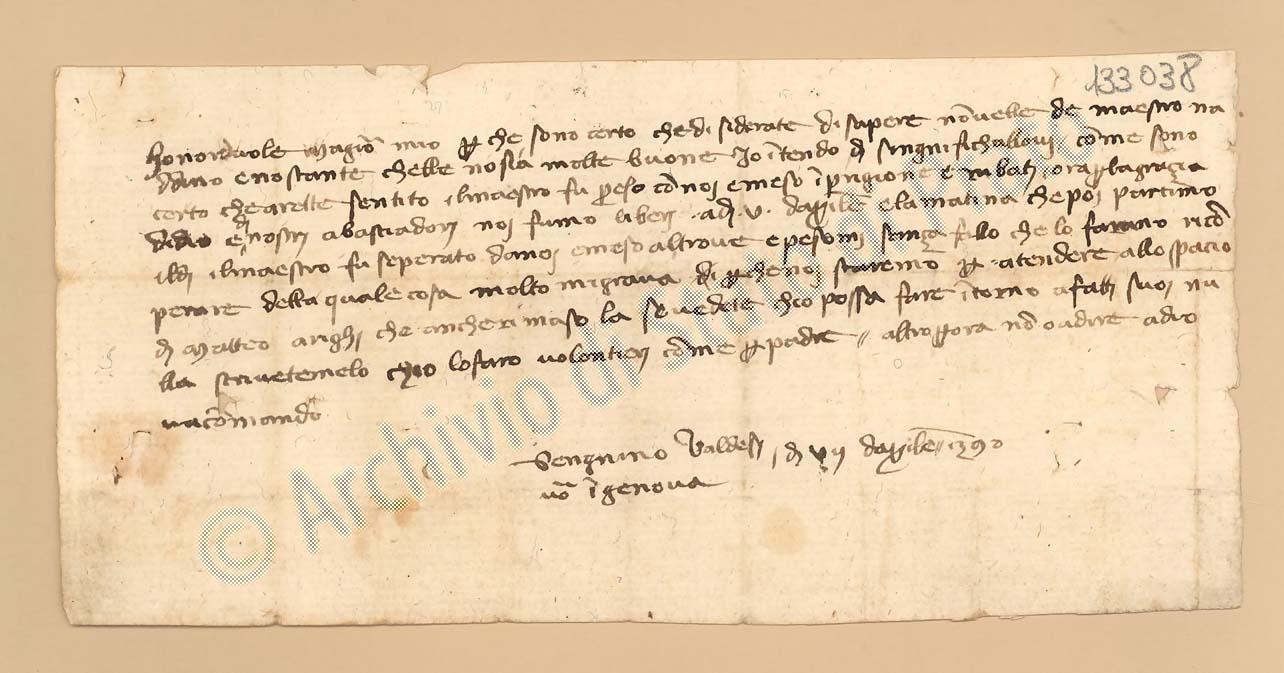 133038
honorevole magior mio p che sono certo che di siderate di sapere novelle de maestro na
ddino e nostante chelle nosia molte buone Io ītendo di singnifichallovi come sono
certo che arette sentito ilmaestro fu preso cōnoi e meso ī prigione e rubati ora p la grazia
didio e di nostri abasciadori noi fumo liberi adi v daprile e lamatina che poi partimo
ildi ilmaestro fu seperato danoi e meso altrove e pesomi sanza fallo che lo farano ricō
perare della quale cosa molto migrava di p che noi staremo p atendere allo spacio
di Matteo arighi che anche rimaso la se vedete chio possa fare ītorno a fatti suoi nu
lla scrivetemelo chio lo faro volontieri cōme p padre // altro p ora nō o a dire a dio
vacōmando
Sengnino Baldesi, di vij daprile 1390
vō ī genova
© Archivio di Stato di Prato